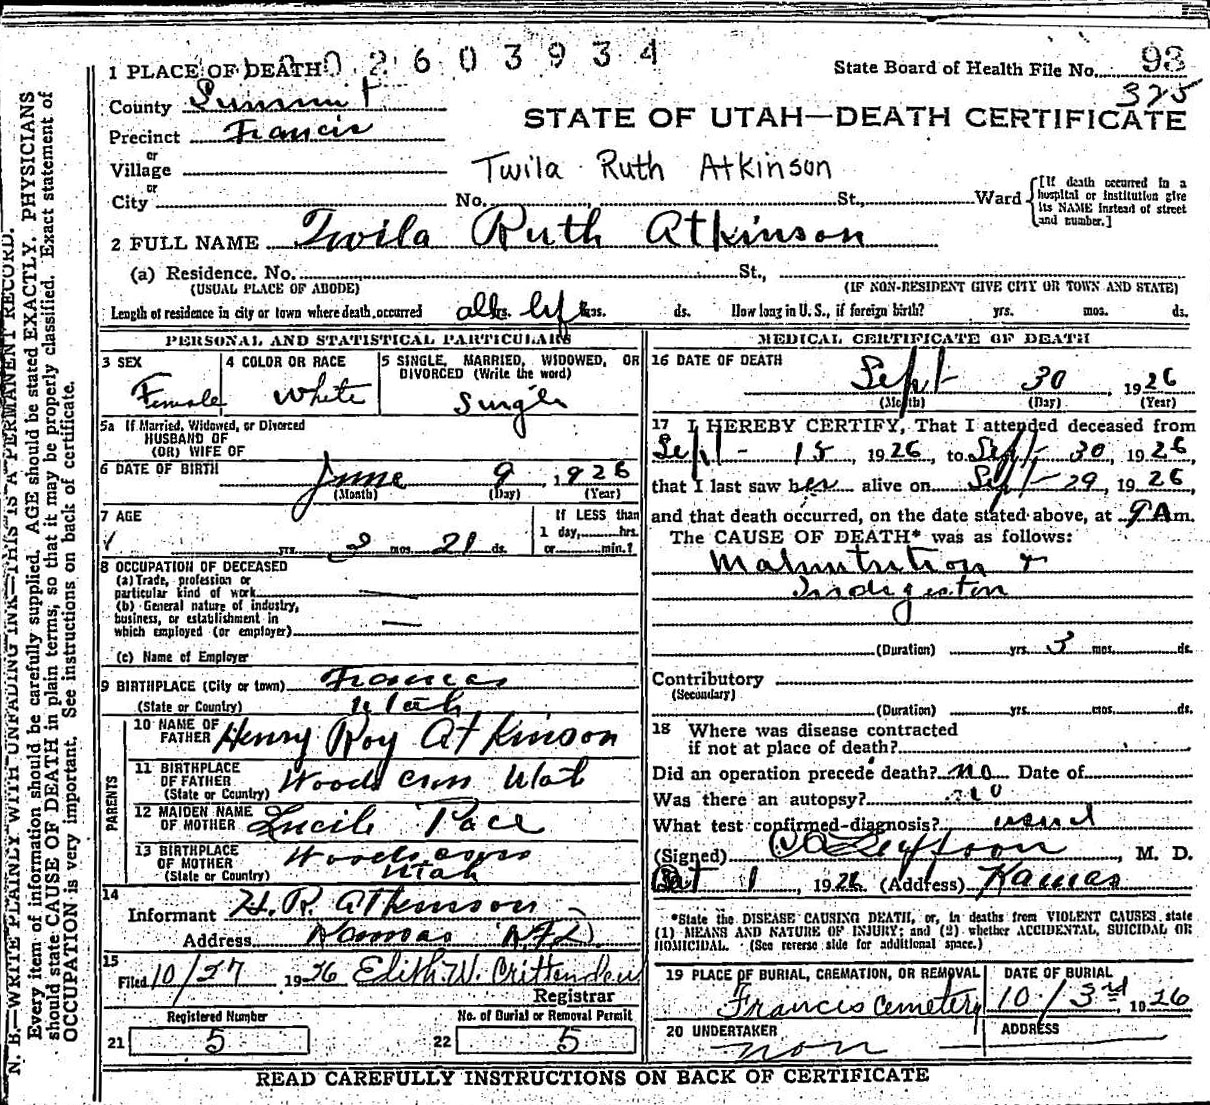 1 PLACE OF DEATH 02603934
State Board of Health File No. 93
325
County Summit
Precinct Francis
STATE OF UTAH—DEATH CERTIFICATE
or
Village
Twila Ruth Atkinson
or
City No. St., Ward [If death occurred in a hospital or institution give its NAME instead of street and number.]
2 FULL NAME Twila Ruth Atkinson
(a) Residence, No. St.,
(USUAL PLACE OF ABODE) (IF NON-RESIDENT GIVE CITY OR TOWN AND STATE)
Length of residence in city or town where death occurred all yrs. life mos. ds. How long in U. S., if foreign birth? yrs. mos. ds.
PERSONAL AND STATISTICAL PARTICULARS
3 SEX
Female
4 COLOR OR RACE
White
5 SINGLE, MARRIED, WIDOWED, OR
DIVORCED (Write the word)
Single
5a If Married, Widowed, or Divorced
HUSBAND OF
(OR) WIFE OF
6 DATE OF BIRTH June 9, 1926
(Month) (Day) (Year)
7 AGE
yrs. 3 mos. 21 ds.
If LESS than
1 day, hrs.
or min.?
8 OCCUPATION OF DECEASED
(a) Trade, profession or
particular kind of work —
(b) General nature of industry,
business, or establishment in
which employed (or employer) —
(c) Name of Employer
9 BIRTHPLACE (City or town) Francis
(State or Country) Utah
PARENTS
10 NAME OF
FATHER Henry Roy Atkinson
11 BIRTHPLACE
OF FATHER Woods Cross Utah
(State or Country)
12 MAIDEN NAME
OF MOTHER Lucile Pace
13 BIRTHPLACE
OF MOTHER Woods cross
(State or Country) Utah
14
Informant H. R. Atkinson
Address Kamas R.F.D.
15
Filed 10/27 1926 Edith W. Crittenden
Registrar
Registered Number
21 5
No. of Burial or Removal Permit
22 5
MEDICAL CERTIFICATE OF DEATH
16 DATE OF DEATH
Sept 30 1926
(Month) (Day) (Year)
17 I HEREBY CERTIFY, That I attended deceased from
Sept - 15, 1926, to Sept - 30, 1926,
that I last saw her alive on Sept - 29, 1926,
and that death occurred, on the date stated above, at 9 A m.
The CAUSE OF DEATH* was as follows:
Malnutrition &
Indigestion
(Duration) yrs. 3 mos. ds.
Contributory
(Secondary)
(Duration) yrs. mos. ds.
18 Where was disease contracted
if not at place of death?
Did an operation precede death? no Date of
Was there an autopsy? no
What test confirmed diagnosis? usual
(Signed) , M. D.
Oct 1, 1926 (Address) Kamas
*State the DISEASE CAUSING DEATH, or, in deaths from VIOLENT CAUSES, state
(1) MEANS AND NATURE OF INJURY; and (2) whether ACCIDENTAL, SUICIDAL OR
HOMICIDAL. (See reverse side for additional space.)
19 PLACE OF BURIAL, CREMATION, OR REMOVAL
Francis Cemetery
DATE OF BURIAL
10/3rd, 1926
20 UNDERTAKER
non
ADDRESS
READ CAREFULLY INSTRUCTIONS ON BACK OF CERTIFICATE
N. B.—WRITE PLAINLY WITH UNFADING INK—THIS IS A PERMANENT RECORD.
Every item of information should be carefully supplied. AGE should be stated EXACTLY. PHYSICIANS
should state CAUSE OF DEATH in plain terms, so that it may be properly classified. Exact statement of
OCCUPATION is very important. See instructions on back of certificate.